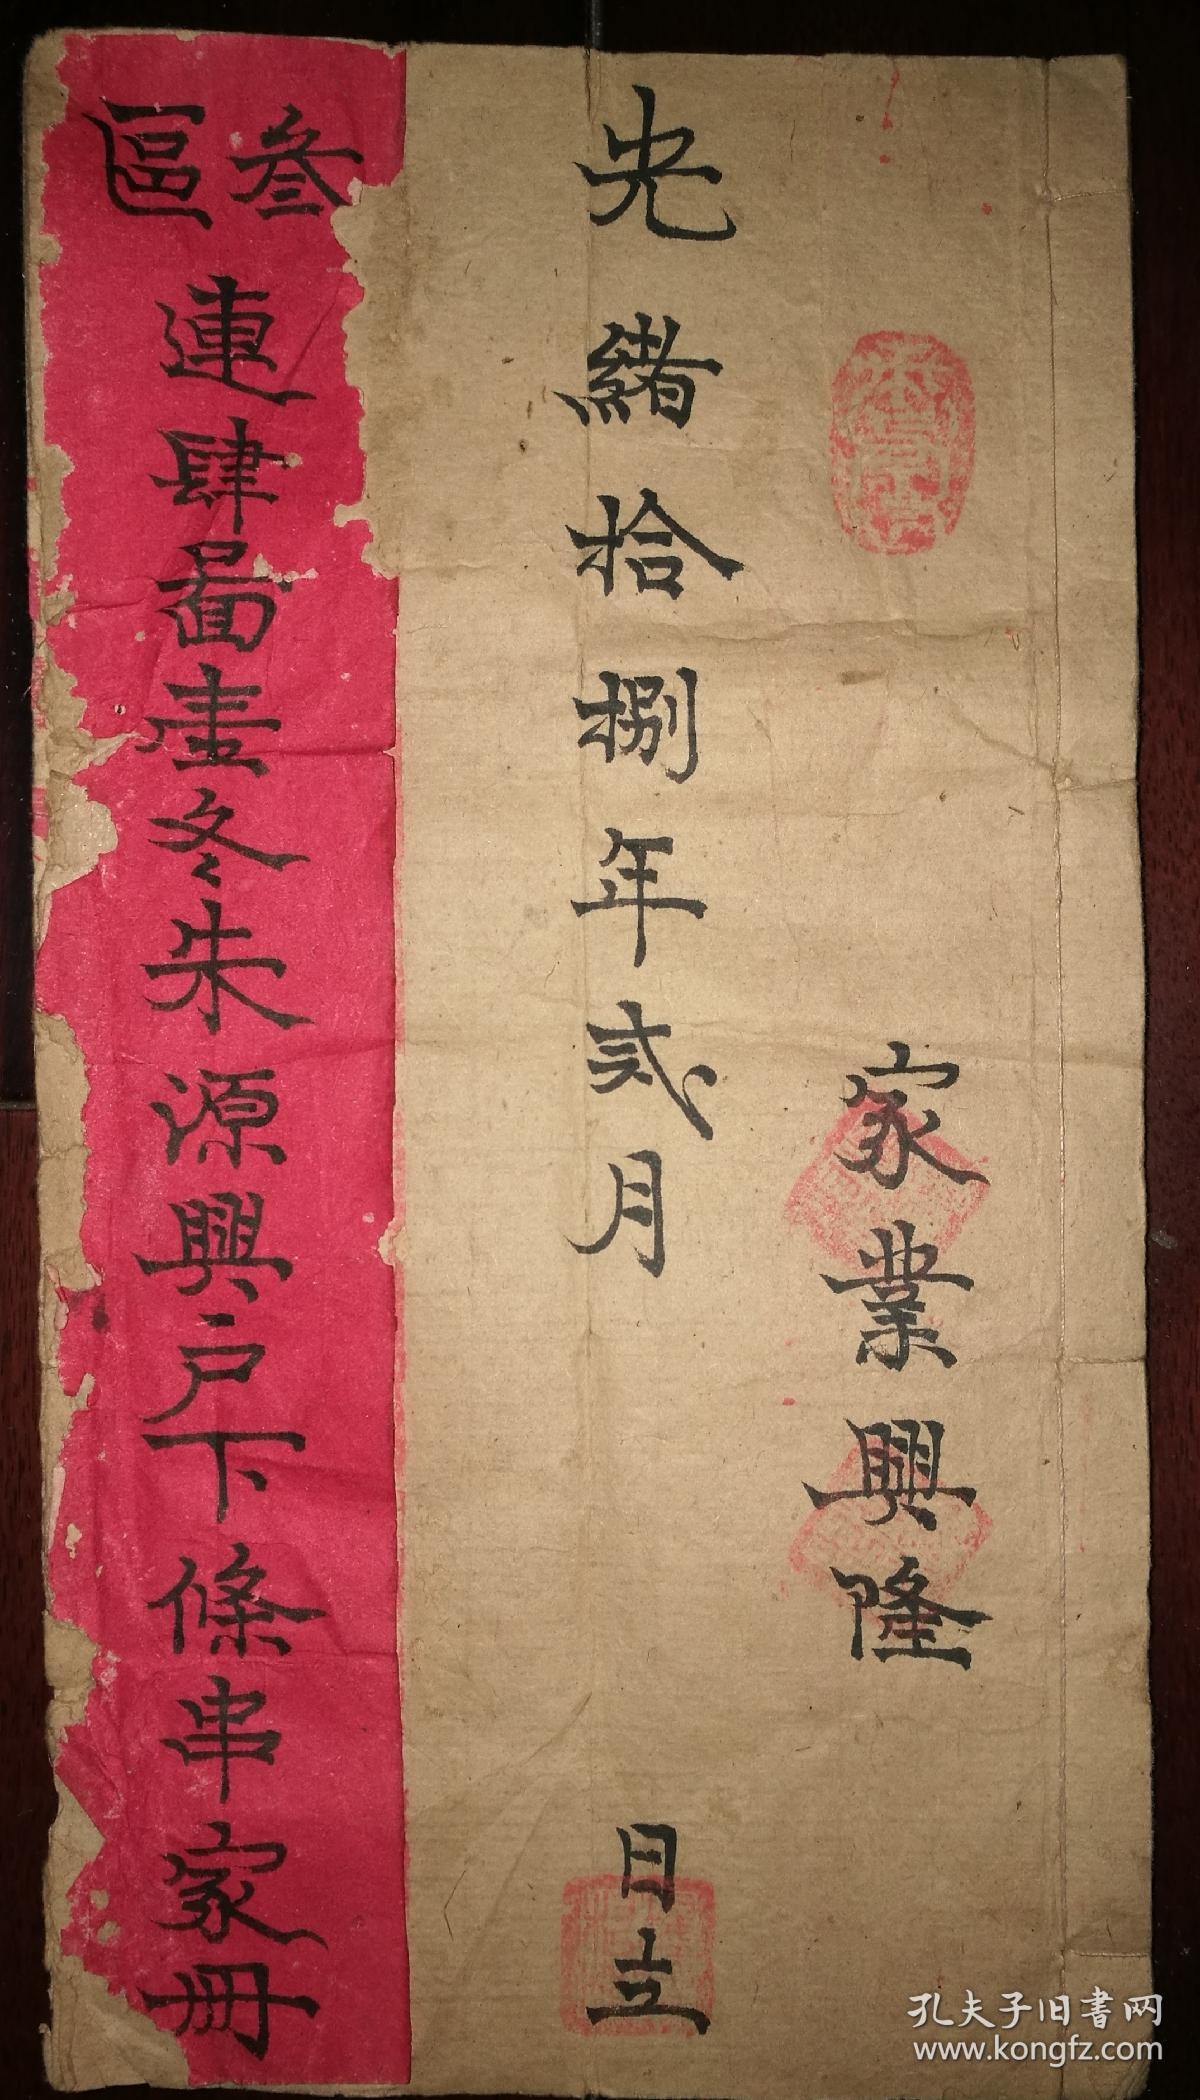 家業興隆
光緒拾捌年貳月
日立
叁區
連肆啚壹冬朱源興戶下條串家冊
孔夫子旧書网
www.kongfz.com